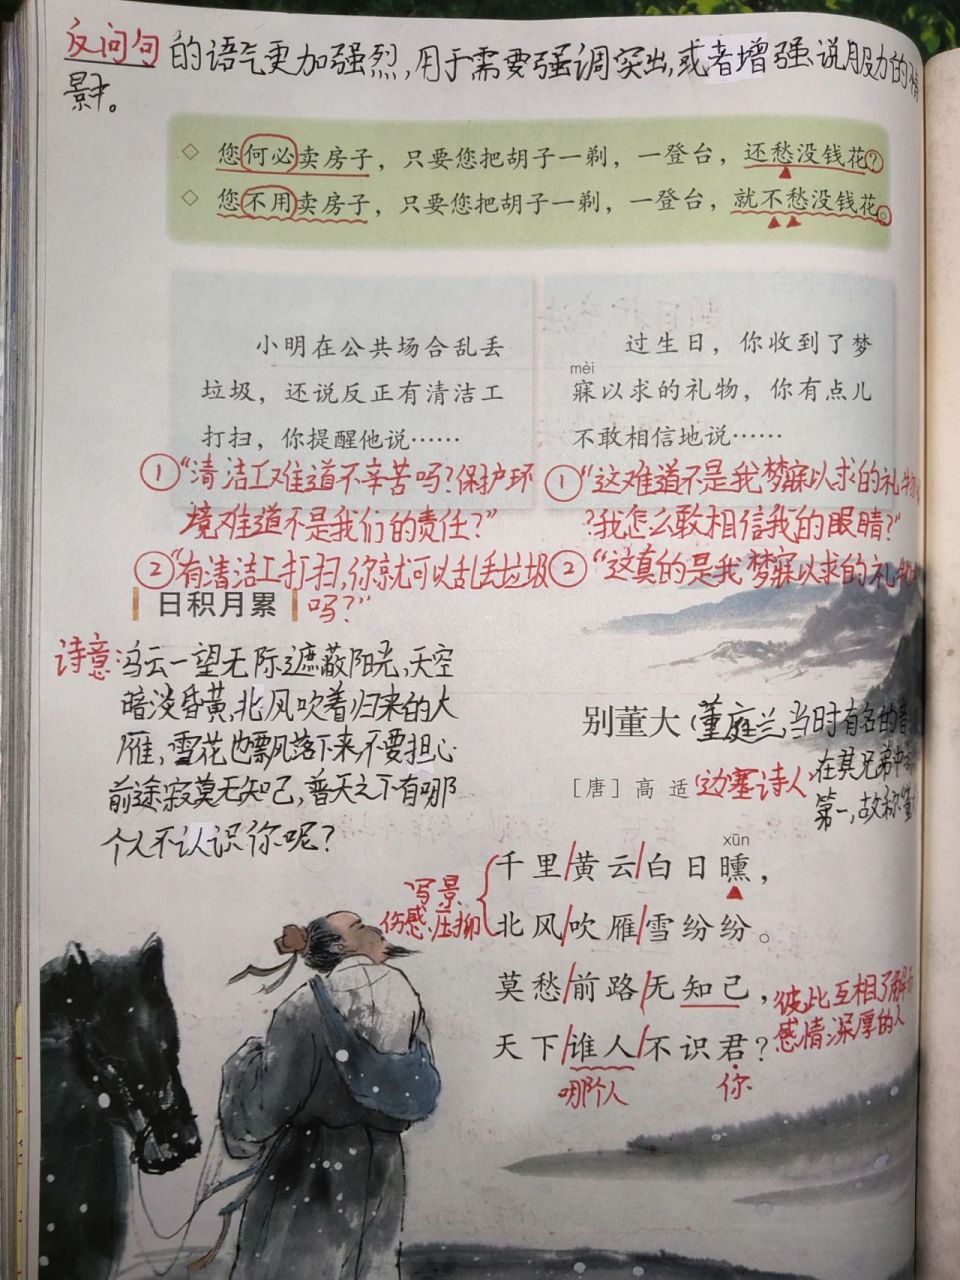 反问句的语气更加强烈,用于需要强调突出,或者增强说服力的情
景中。
◇ 您何必卖房子，只要您把胡子一剃，一登台，还愁没钱花？
◇ 您不用卖房子，只要您把胡子一剃，一登台，就不愁没钱花。
小明在公共场合乱丢
垃圾，还说反正有清洁工
打扫，你提醒他说……
①“清洁工难道不辛苦吗?保护环
境难道不是我们的责任?”
②“有清洁工打扫,你就可以乱丢垃圾
吗?”
过生日，你收到了梦
mèi
寐以求的礼物，你有点儿
不敢相信地说……
①“这难道不是我梦寐以求的礼物
?我怎么敢相信我的眼睛?”
②“这真的是我梦寐以求的礼物
日积月累
诗意:
冯云一望无际遮蔽阳光,天空
暗淡昏黄,北风吹着归来的大
雁,雪花也飘风落下来,不要担心
前途寂寞无知己,普天之下有哪
个人不认识你呢?
别董大
(董庭兰,当时有名的音
在其兄弟中
第一,故称“董
［唐］高 适
边塞诗人
xūn
千里/黄云/白日曛，
北风/吹雁/雪纷纷。
写景
伤感、压抑
莫愁/前路/无知己，
彼此互相了解
感情深厚的人
天下/谁人/不识君？
哪个人
你